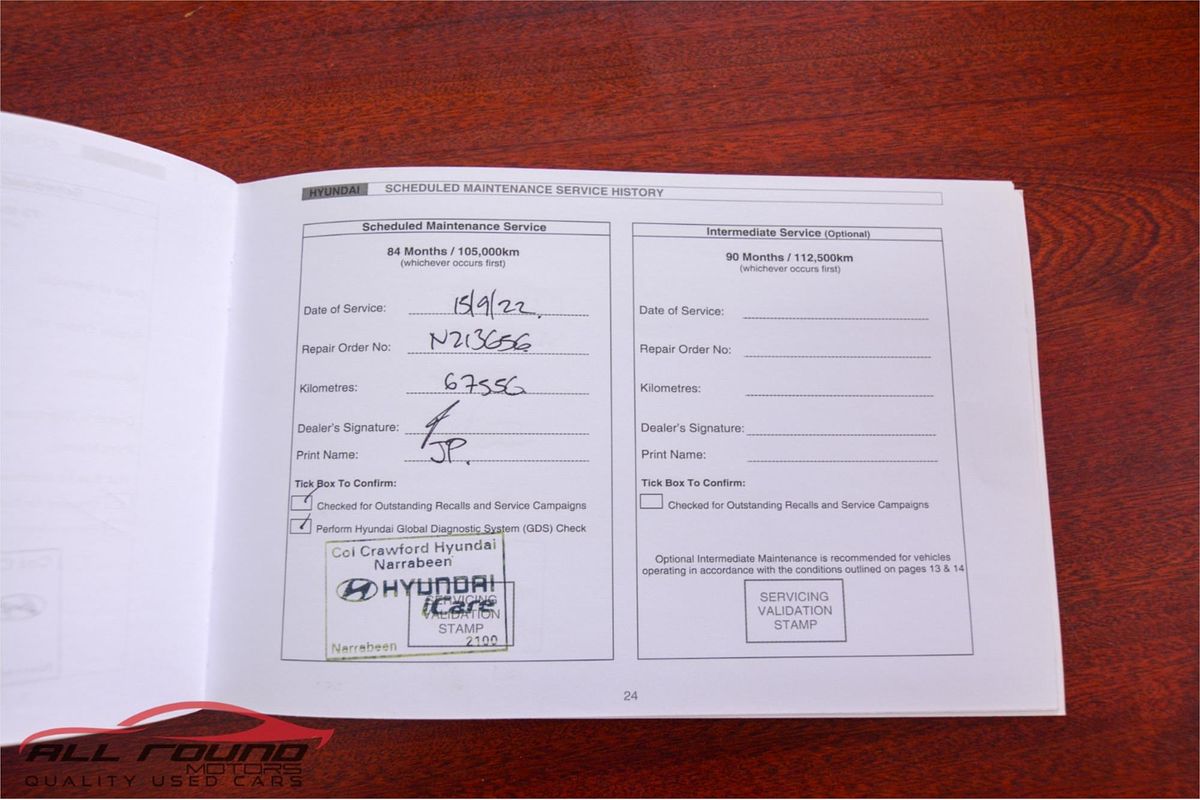 HYUNDAI SCHEDULED MAINTENANCE SERVICE HISTORY
Scheduled Maintenance Service
84 Months / 105,000km
(whichever occurs first)
Date of Service: 15/9/22.
Repair Order No: N213656
Kilometres: 67556
Dealer's Signature:
Print Name: JP.
Tick Box To Confirm:
Checked for Outstanding Recalls and Service Campaigns
Perform Hyundai Global Diagnostic System (GDS) Check
Col Crawford Hyundai
Narrabeen
HYUNDAI
iCare
SERVICING
VALIDATION
STAMP
2100
Narrabeen
Intermediate Service (Optional)
90 Months / 112,500km
(whichever occurs first)
Date of Service:
Repair Order No:
Kilometres:
Dealer's Signature:
Print Name:
Tick Box To Confirm:
Checked for Outstanding Recalls and Service Campaigns
Optional Intermediate Maintenance is recommended for vehicles
operating in accordance with the conditions outlined on pages 13 & 14
SERVICING
VALIDATION
STAMP
24
ALL ROUND
MOTORS
QUALITY USED CARS